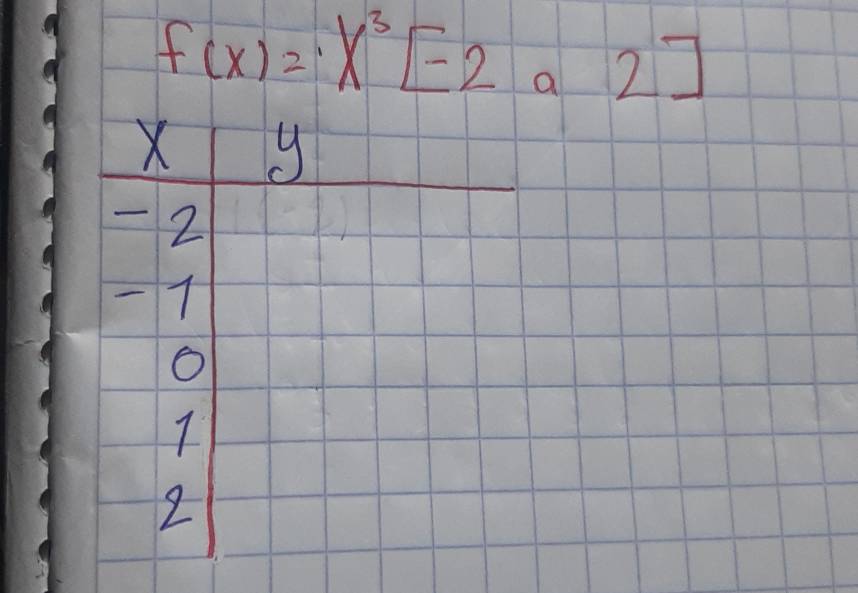 f(x)= X³ [-2 a 2]
x y
-2
-1
0
1
2